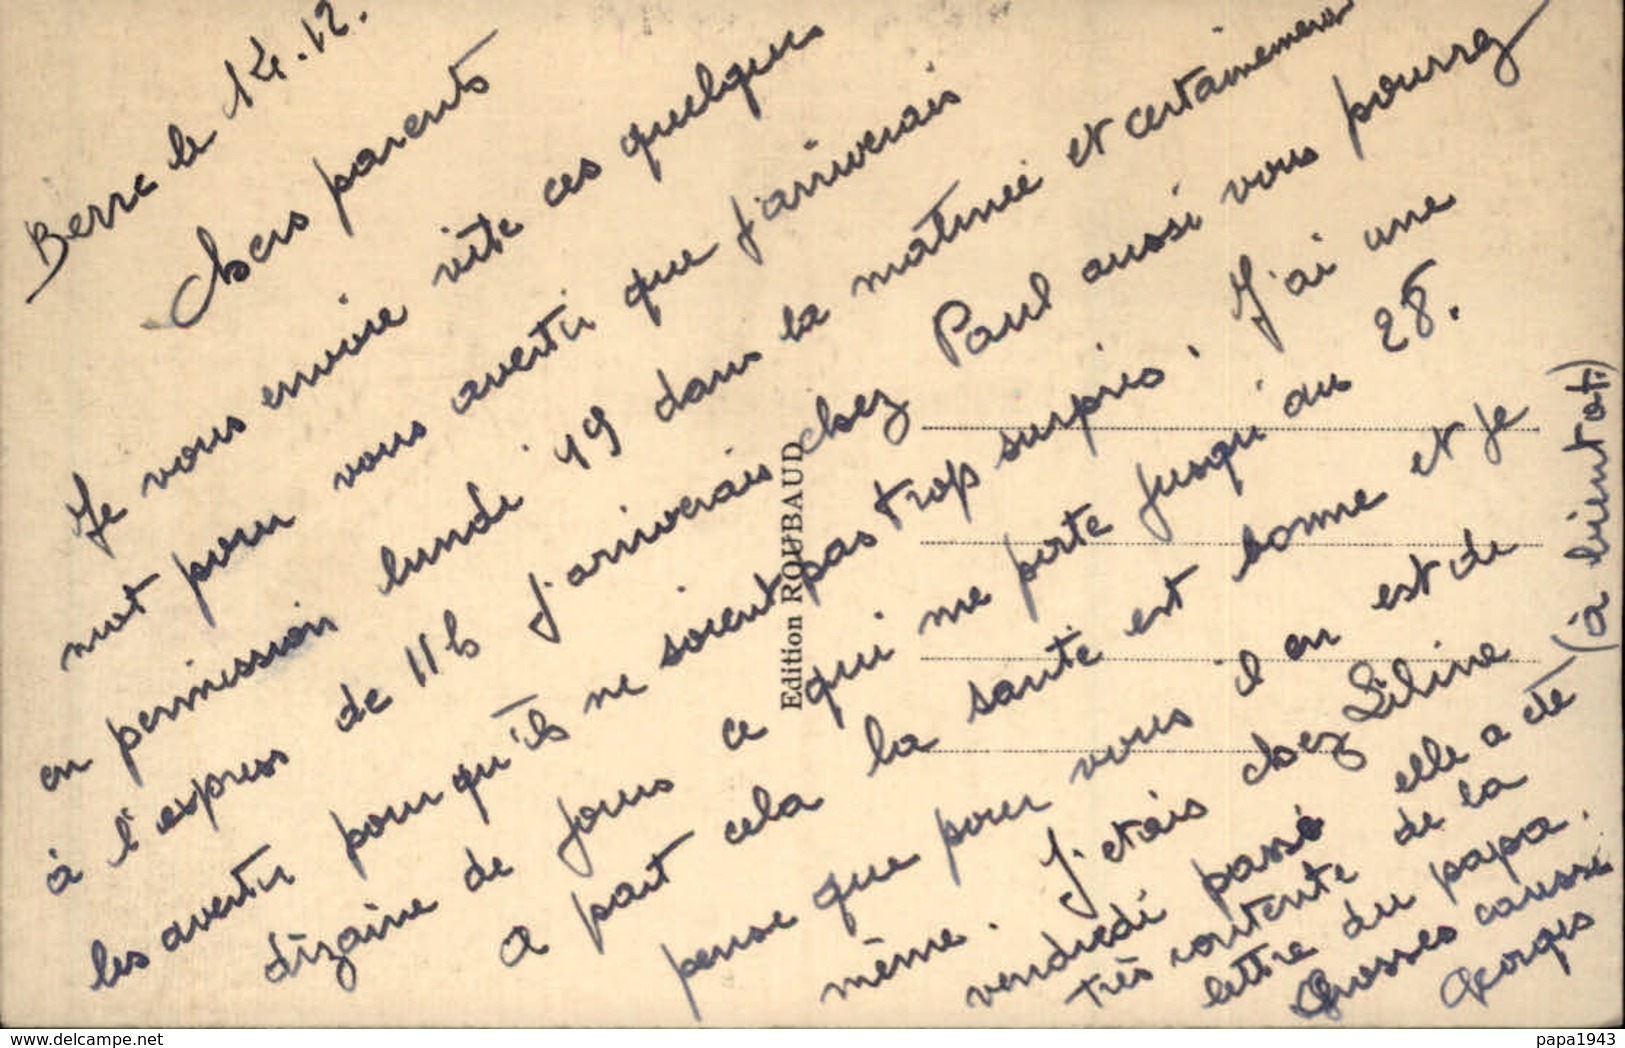 Berre le 14.12.
Chers parents
Je vous envoie vite ces quelques
mot pour vous avertir que j'arriverais
en permission lundi 19 dans la matinée et certainement
à l'express de 11h j'arriverais chez Paul aussi vous pourrez
les avertir pour qu'ils ne soient pas trop surpris. J'ai une
dizaine de jours ce qui me porte jusqu'au 28.
A part cela la santé est bonne et je
pense que pour vous il en est de
même. J'etais chez Liline
vendredi passé elle a été
très contente de la
lettre du papa.
Grosses caresses
Georges
(à bientot.)
Edition ROUBAUD
delcampe.net
papa1943